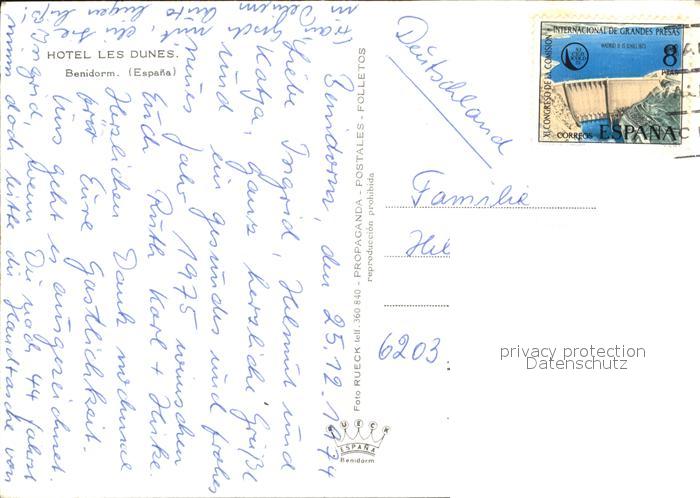 HOTEL LES DUNES.
Benidorm. (España)
Benidorm, den 25.12.1974
Liebe Ingrid, Helmut und
Katja, Ganz herzliche Grüße
und ein gesundes und frohes
neues Jahr 1975 wünschen
Euch Ruth Karl + Heike.
Herzlichen Dank nochmal
für Eure Gastlichkeit.
Uns geht es ausgezeichnet.
Ingrid, wenn Du nach 44 fährst
nimm doch bitte die Handtasche von
mit, die
in Deinem Auto liegen ließ!
Foto RUECK telf. 360 840 - PROPAGANDA - POSTALES - FOLLETOS
reproducción prohibida
RUECK
ESPAÑA
Benidorm
Deutschland
XI CONGRESO DE LA COMISION
INTERNACIONAL DE GRANDES PRESAS
MADRID 11-15 JUNIO 1973
8
PTAS
CORREOS ESPAÑA
Familie
Hel
6203
privacy protection
Datenschutz